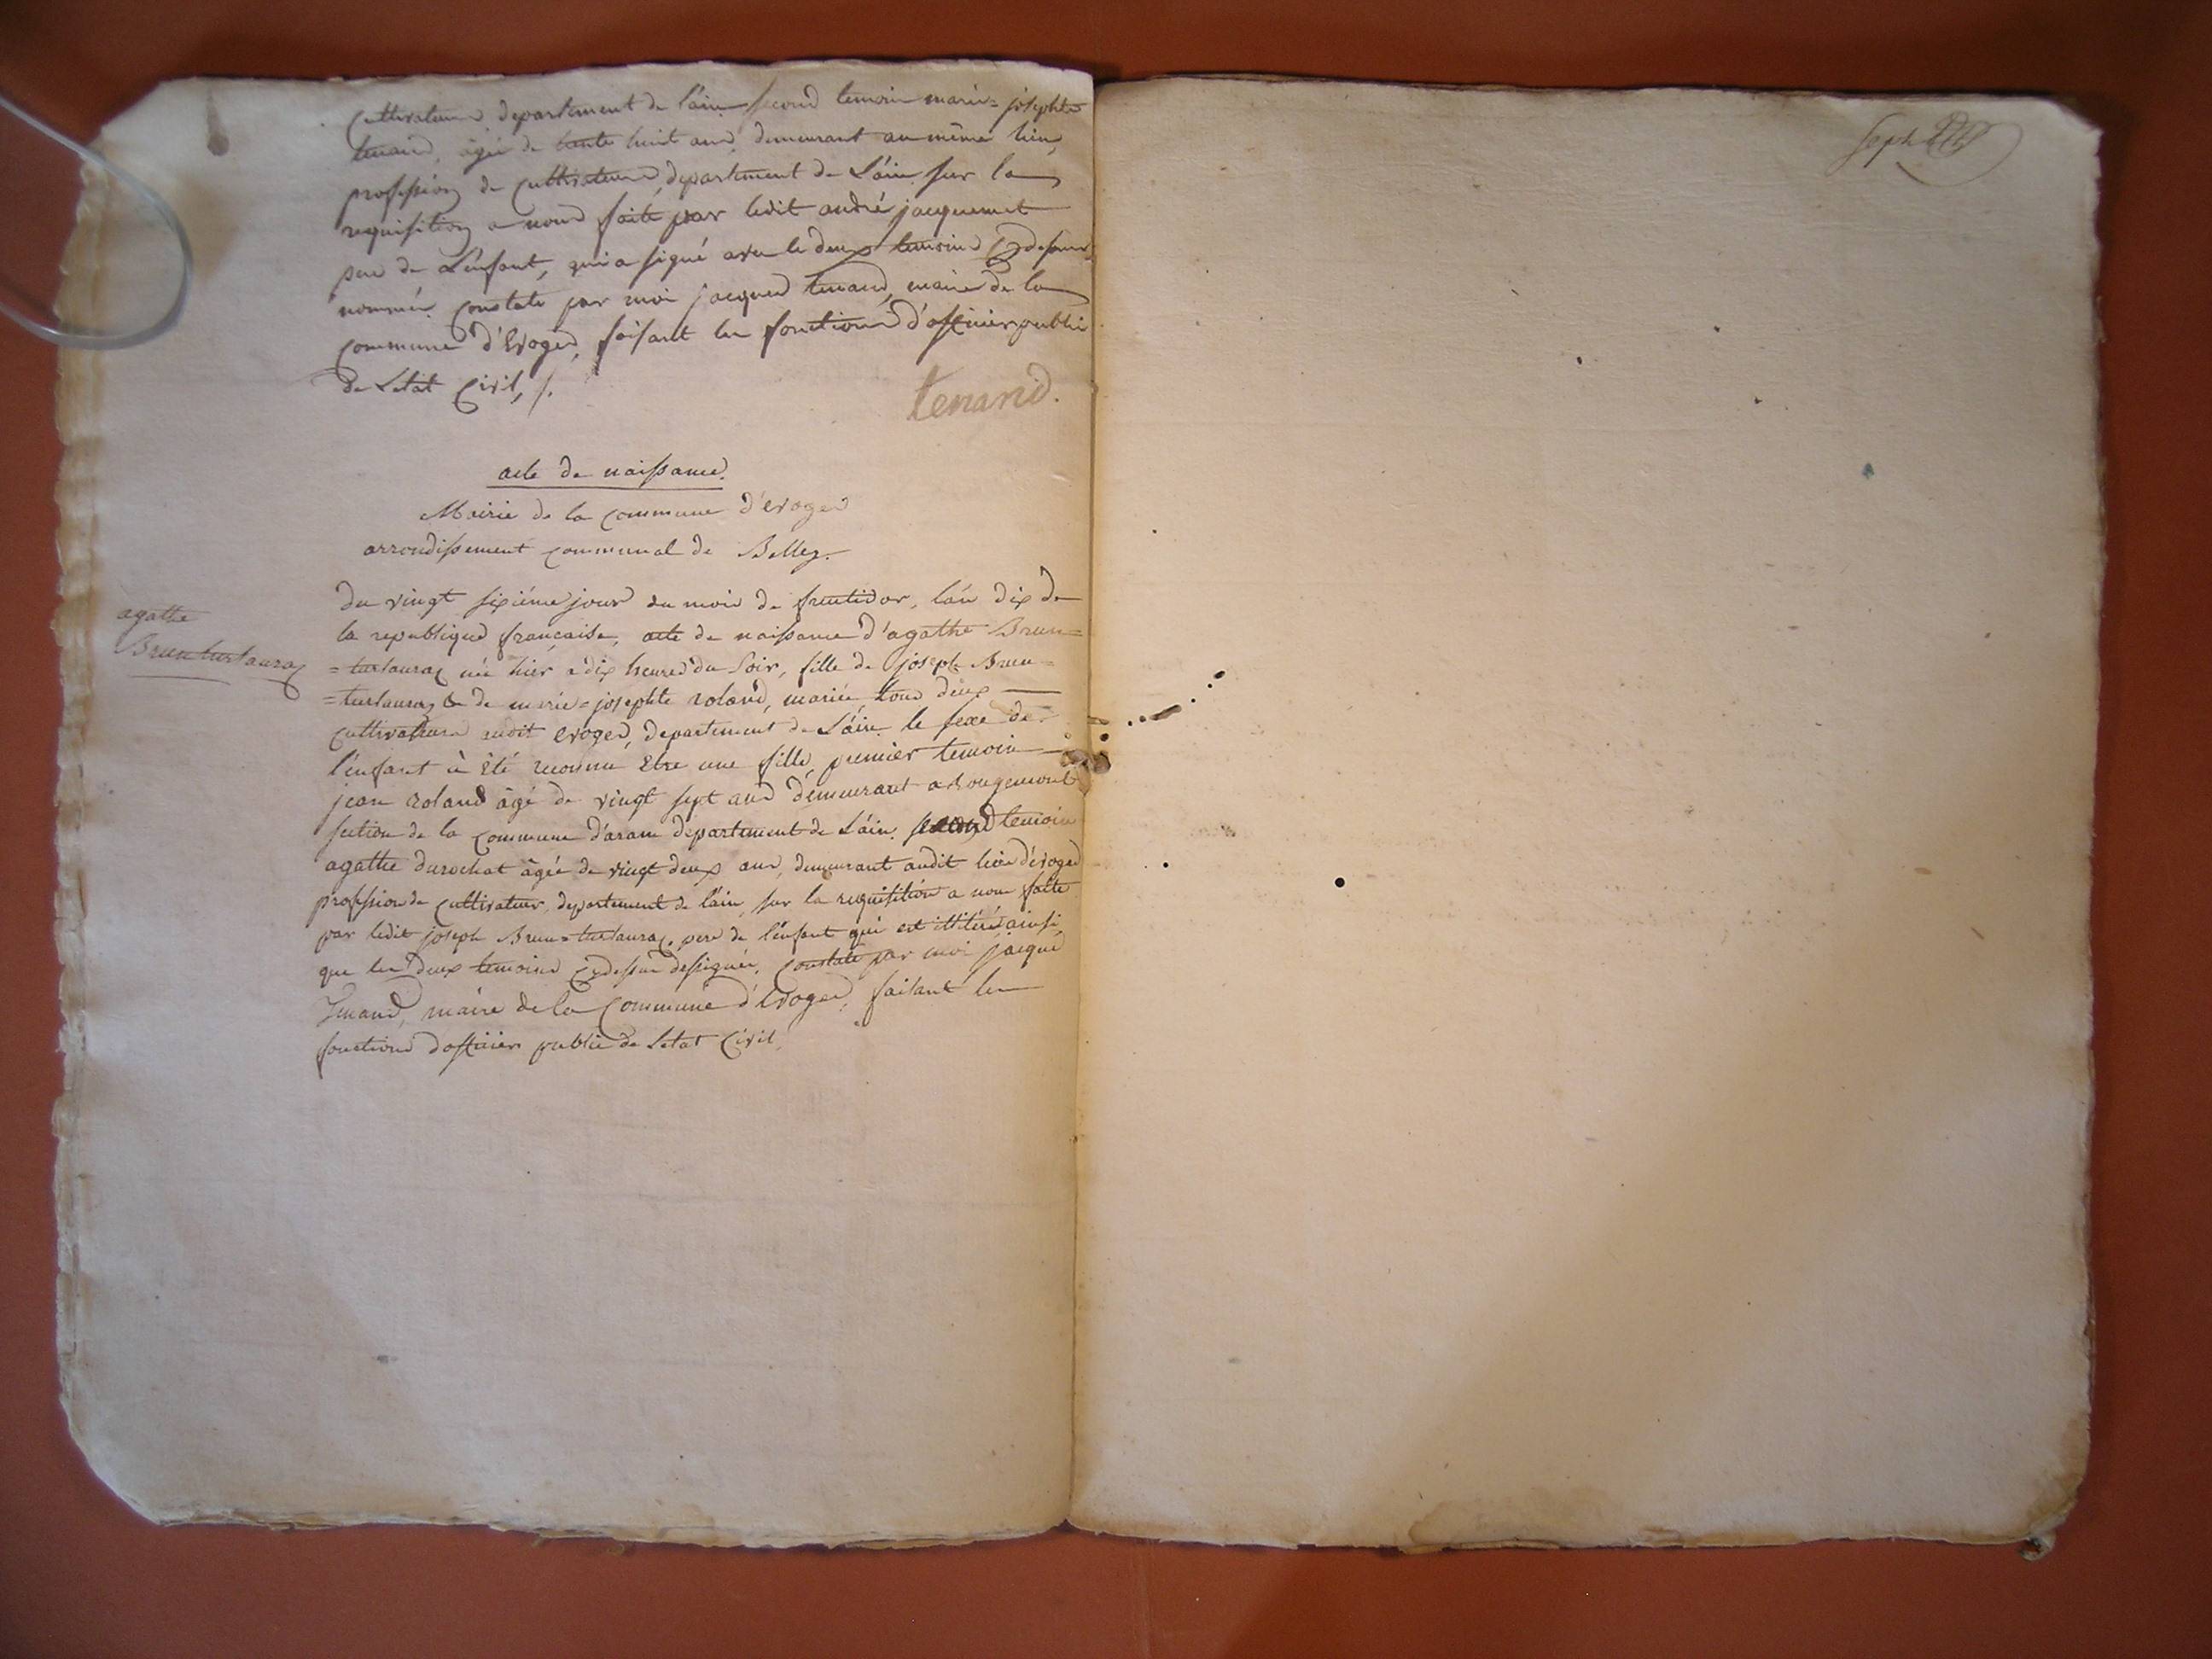 cultivateurs departement de l'ain second temoin marie=josephte
tenand, âgée de trente huit ans, demeurant au même lieu,
profession de cultivateurs, departement de L'ain sur la
requisition a nous faite par ledit andré jacquemet
pere de L'enfant, qui a signé avec le deux temoins cy dessus
nommés constaté par moi jacques tenand, maire de la
commune d'Evoges, faisant les fonctions d'officier public
de Letat Civil, /.
tenand.
acte de naissance.
Mairie de la commune d'evoges
arrondissement communal de Belley.
du vingt sixiéme jour du mois de fructidor, l'an dix de
la republique française, acte de naissance d'agathe Brun=
agathe
Brun tursauraz
=tursauraz née hier a dix heures du Soir, fille de joseph Brun=
=tursauraz & de marie=josephte roland, mariés, tous deux
cultivateurs audit evoges, departement de L'ain le sexe de
l'enfant à été reconnu Etre une fille, premier temoin
jean roland âgé de vingt sept ans demeurant a Rougemont
section de la commune d'aranc departement de L'ain. second temoin
agathe durochat âgée de vingt deux ans, demeurant audit lieu d'évoges
profession de cultivateur, departement de l'ain, sur la requisition a nous faite
par ledit joseph Brun=tursauraz. pere de l'enfant qui est illitéré ainsi
que les deux temoins cydessus dessignés, constaté par moi jacques
Tenand, maire de la Commune d'Evoges, faisant les
fonctions d'officier public de Letat Civil,